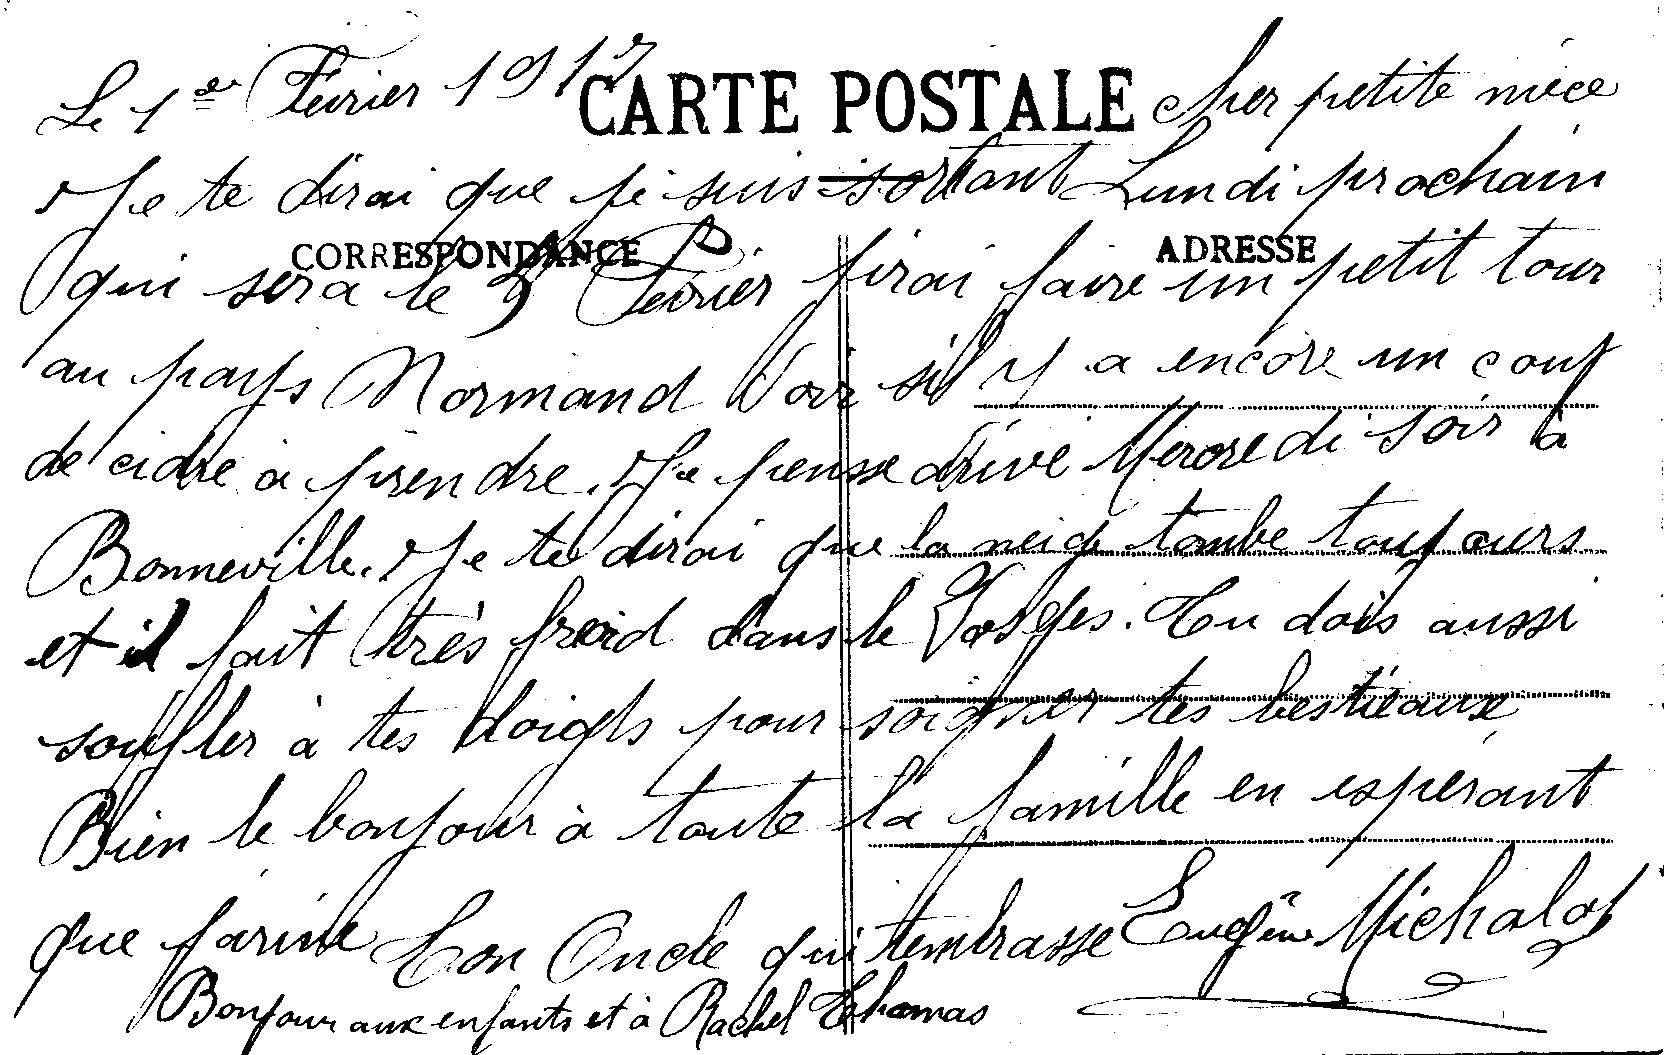 Le 1er Février 1917 CARTE POSTALE cher petite niéce
Je te dirai que je suis sortant Lundi prochain
CORRESPONDANCE ADRESSE
qui sera le 5 Février j'irai faire un petit tour
au pays Normand Voir sil y a encore un coup
de cidre à prendre. Je pense arivé Mercredi soir à
Bonneville. Je te dirai que la neige tombe toujours
et il fait très froid dans le Vosges. Tu dois aussi
souffler à tes doigts pour soigner tes bestieaux,
Bien le bonjour à toute la famille en espérant
que j'arive Ton Oncle qui t'embrasse Eugène Michalot
Bonjour aux enfants et à Rachel Thomas